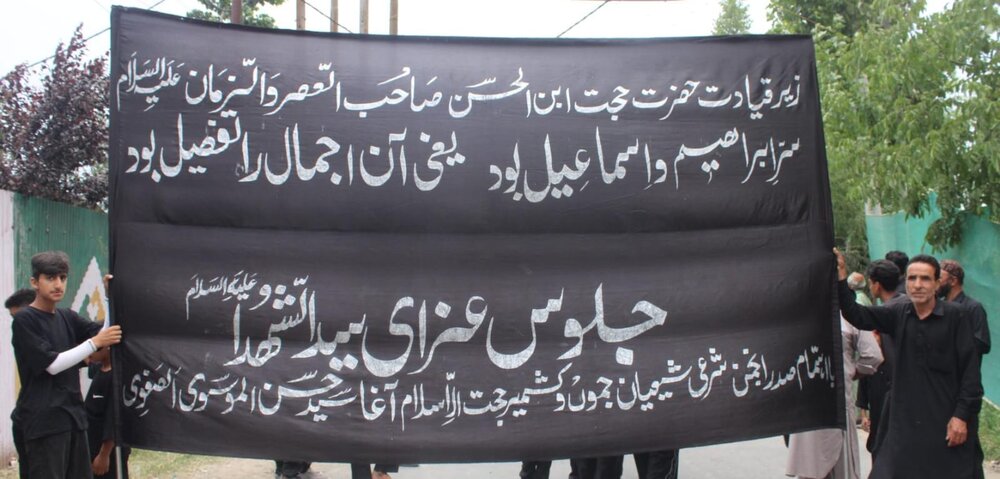 زیر قیادت حضرت حجت ابن الحسن صاحب العصر والزمان علیہ السلام
سرِّ ابراھیم و اسماعیل بود یعنی آن اجمال را تفصیل بود
جلوس عزای سید الشھداؑ علیہ السلام
بااہتمام صدر انجمن شرعی شیعیان جموں و کشمیر حجت الاسلام آغا سید حسن الموسوی الصفوی